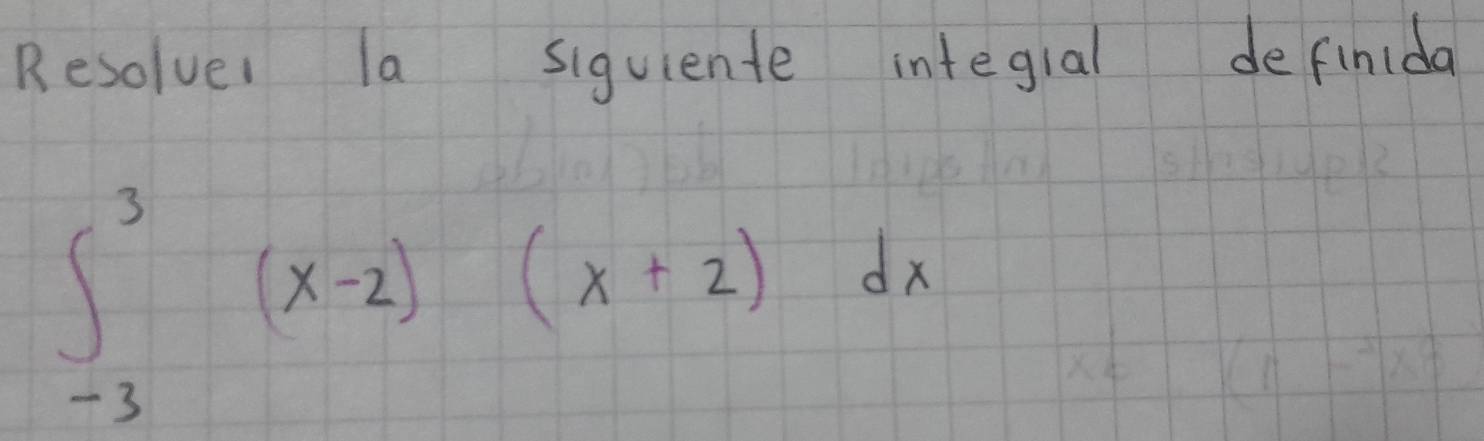 Resolver la siguiente integral definida
∫ 3 -3 (x-2) (x + 2) dx